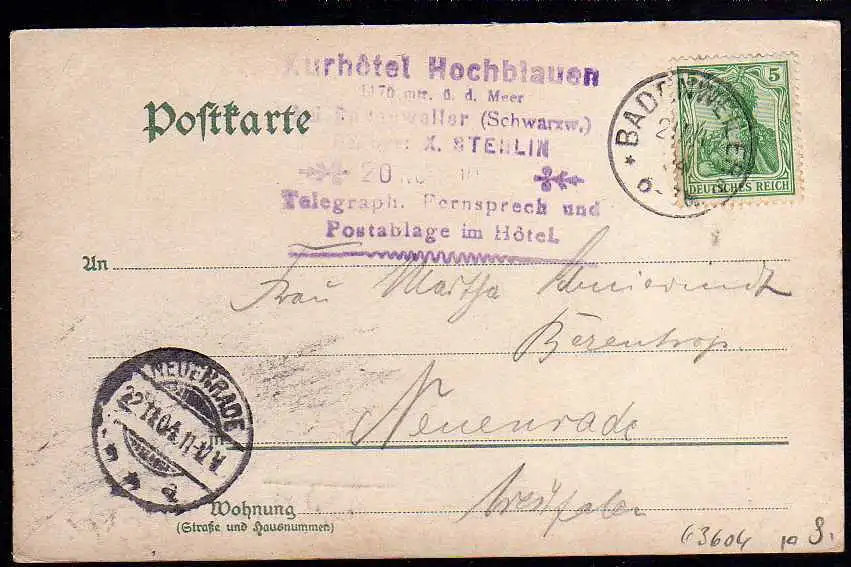 Kurhôtel Hochblauen
1170 mtr. ü. d. Meer
Badenweiler (Schwarzw.)
X. STEHLIN
20
Telegraph. Fernsprech und
Postablage im Hôtel.
Postkarte
BADENWEILER
5
DEUTSCHES REICH
An
Frau Martha
Bärentrop
Neuenrade
Westfalen
NEUENRADE
22.11.04.11-12V.
a
Wohnung
(Straße und Hausnummer)
63604